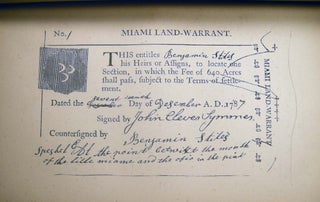 No. 1
MIAMI LAND-WARRANT.
THIS entitles Benjamin Stites
his Heirs or Assigns, to locate one
Section, in which the Fee of 640 Acres
shall pass, subject to the Terms of settle-
ment.
Dated the seventeenth Day of December A. D. 1787
Signed by John Cleves Symmes
Countersigned by Benjamin Stites
at the point betwixt the mouth
of the little miame and the ohio in the pint
MIAMI LAND-WARRANT